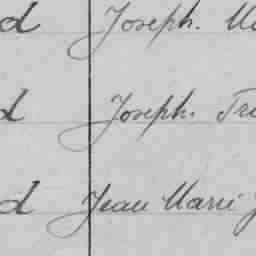 d Joseph. Ma
d Joseph. Tri
d Jean Marie J